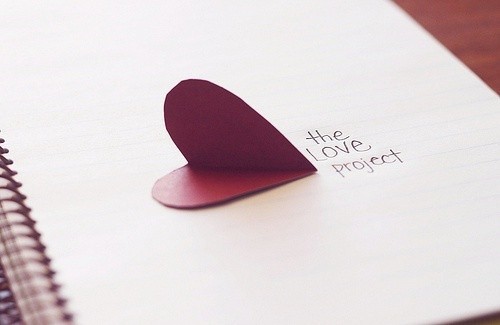 the
LOVE
project